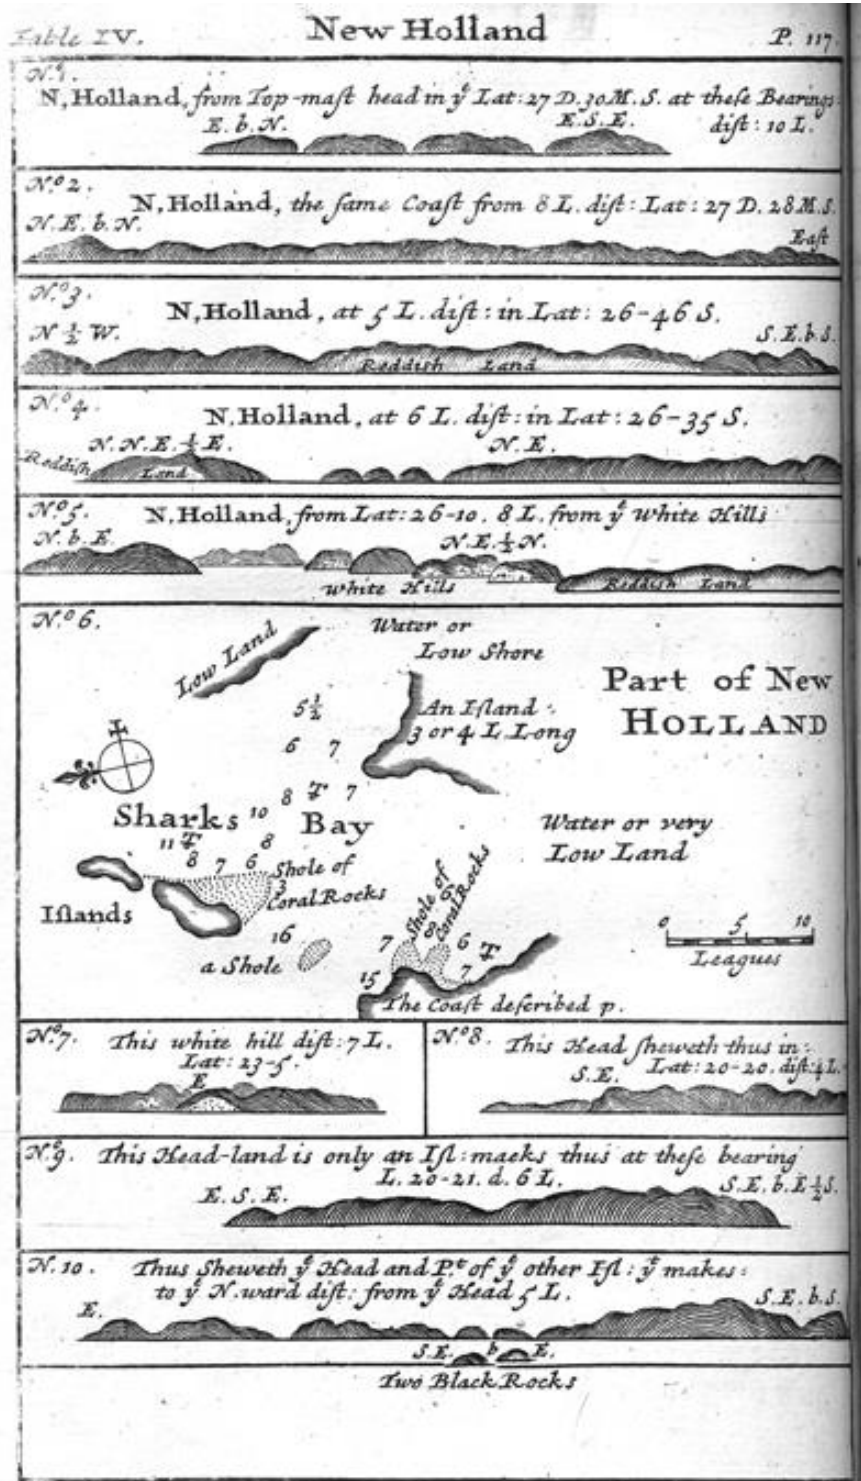 Table IV.
New Holland
P. 117.
N.º 1.
N, Holland, from Top-maſt head in yͤ Lat: 27 D. 30 M. S. at theſe Bearings
E. b. N.
E. S. E.
diſt: 10 L.
N.º 2.
N, Holland, the ſame Coaſt from 8 L. diſt: Lat: 27 D. 28 M. S.
N. E. b. N.
Eaſt
N.º 3.
N, Holland, at 5 L. diſt: in Lat: 26-46 S.
N ½ W.
S. E. b. S.
Reddiſh Land
N.º 4.
N, Holland, at 6 L. diſt: in Lat: 26-35 S.
N. N. E. ½ E.
N. E.
Reddiſh
Land
N.º 5.
N, Holland, from Lat: 26-10. 8 L. from yͤ White Hills
N. b. E.
N. E. ½ N.
White Hills
Reddiſh Land
N.º 6.
Low Land
Water or
Low Shore
Part of New
HOLLAND
5½
An Iſland
3 or 4 L Long
6 7
8 7
Sharks
10
Bay
Water or very
Low Land
11
8
8 7 6
Shole of
3
Coral Rocks
Iſlands
16
a Shole
Shole of
Coral Rocks
7
8 8
6
7
15
0 5 10
Leagues
The Coaſt deſcribed p.
N.º 7.
This white hill diſt: 7 L.
Lat: 23-5.
E
N.º 8.
This Head ſheweth thus in
S. E.
Lat: 20-20. diſt: 4 L.
N.º 9.
This Head-land is only an Iſl: maeks thus at theſe bearing
L. 20-21. d. 6 L.
E. S. E.
S. E. b. E ½ S.
N. 10.
Thus Sheweth yͤ Head and P.ᵗ of yͤ other Iſl: yᵗ makes:
to yͤ N. ward diſt: from yͤ Head 5 L.
E.
S. E. b. S.
S. E. b E.
Two Black Rocks